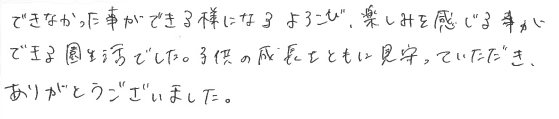 できなかった事ができる様になるよろこび、楽しみを感じる事が
できる園生活でした。子供の成長をともに見守っていただき、
ありがとうございました。